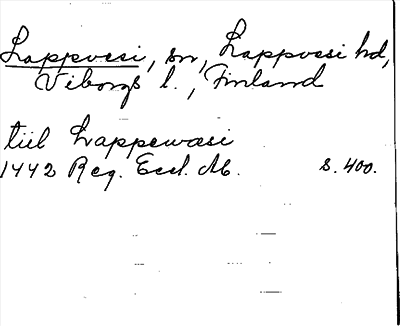 Lappvesi, sn, Lappvesi hd,
Viborgs l., Finland
tiil Lappewæsi
1442 Reg. Eccl. Ab. s. 400.